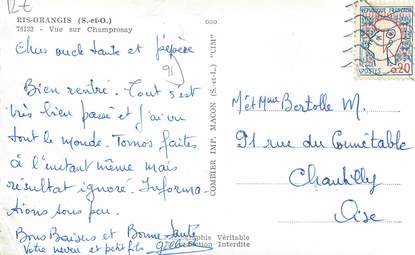 12€
RIS-ORANGIS (S.-et-O.)
78232 - Vue sur Champrosay
Chers oncle tante et pépère
91
Bien rentré. Tout s'est
très bien passé et j'ai vu
tout le monde. Tornos faites
à l'instant même mais
résultat ignoré. Informa-
tions sous peu.
Bons Baisers et Bonne Santé
Votre neveu et petit fils
Véritable
Interdite
COMBIER IMP. MACON (S.-et-L.) "CIM"
REPUBLIQUE FRANCAISE
POSTES
0,20
M et Mme Bertolle M.
91 rue du Connétable
Chantilly
Oise